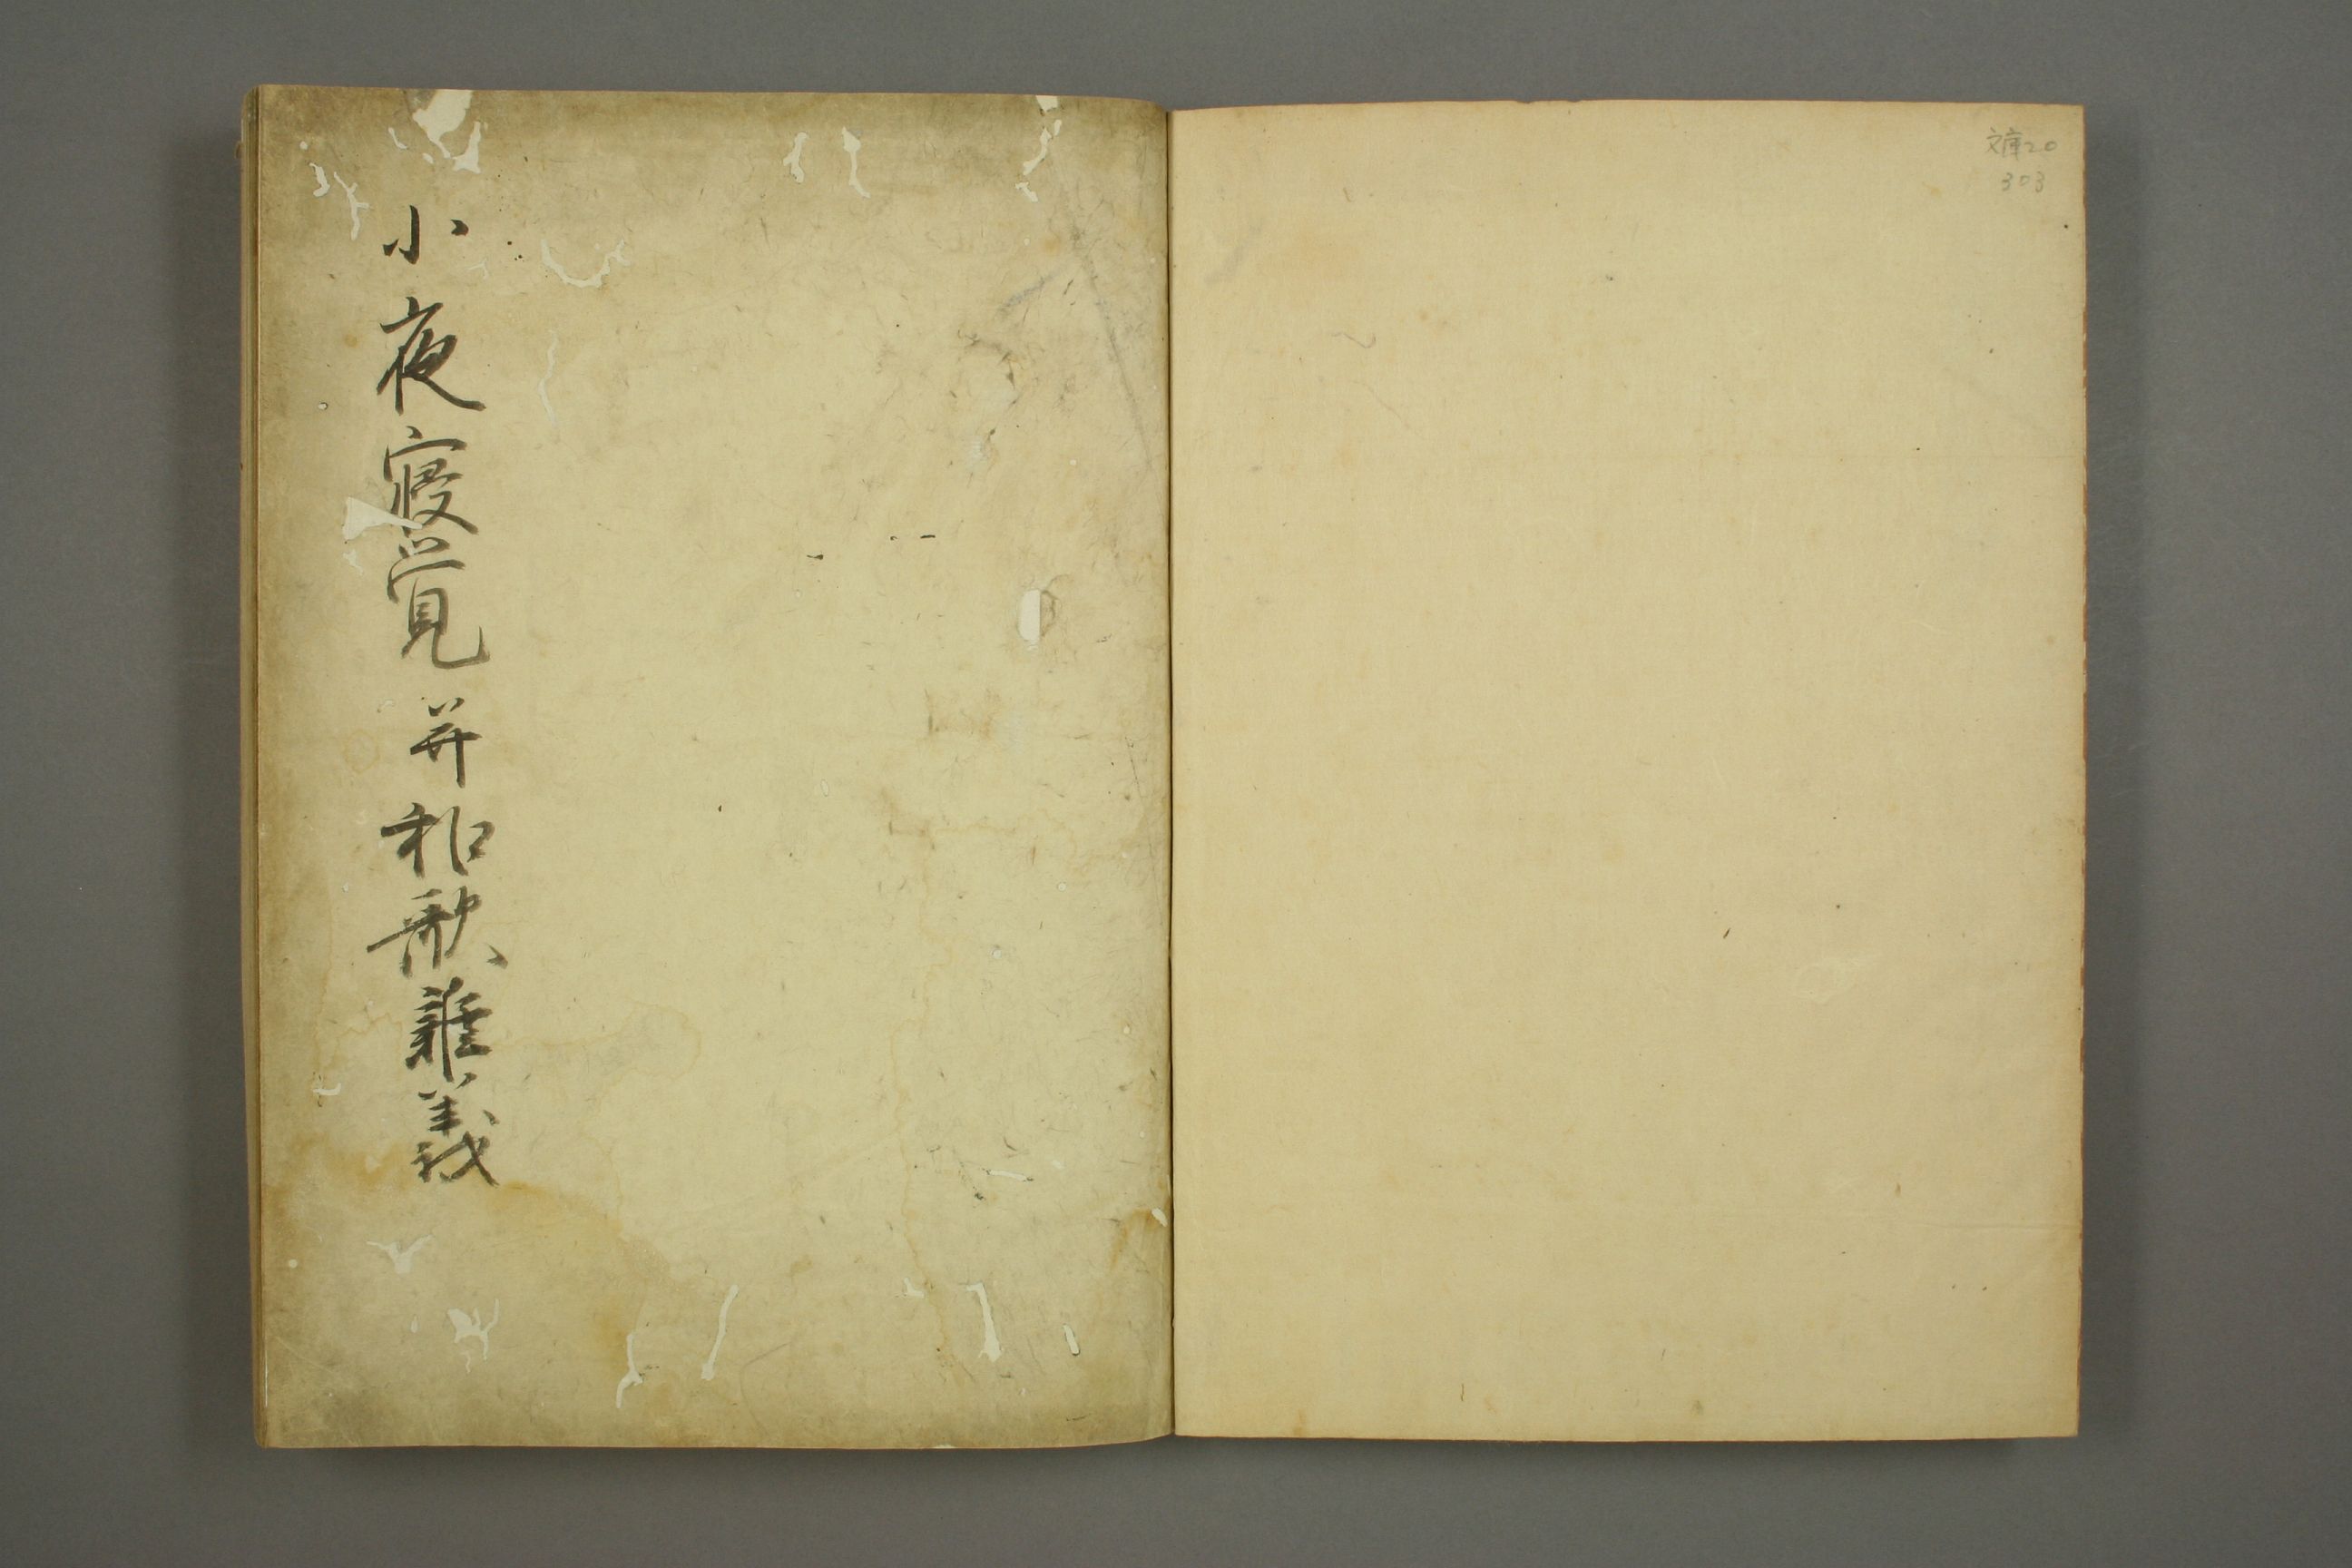 文庫20
303
小夜寝覚并和歌難義